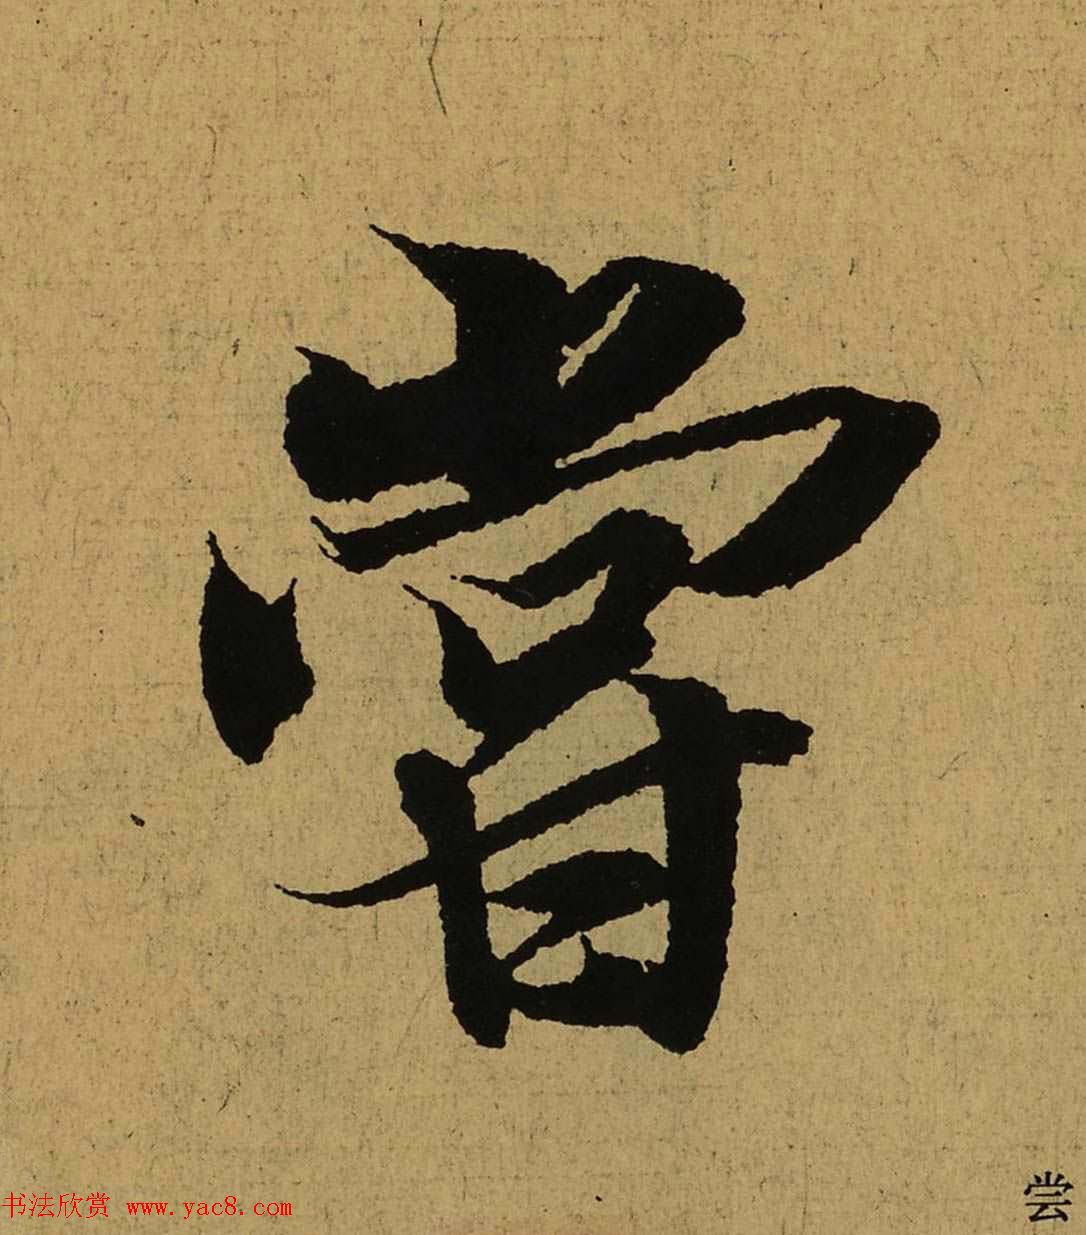 甞
尝
书法欣赏 www.yac8.com